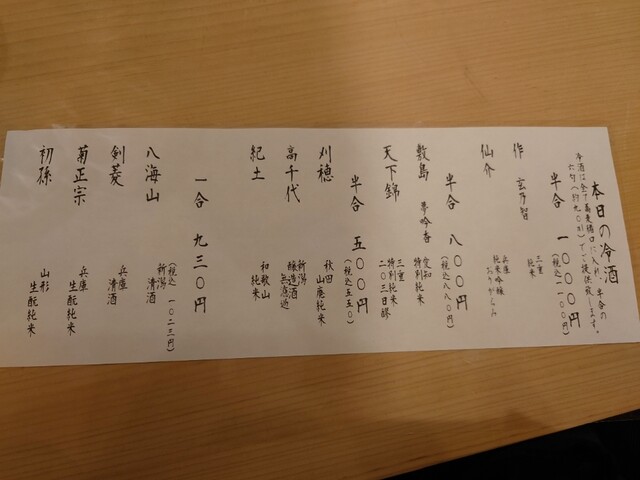 本日の冷酒
冷酒は全て蕎麦猪口に入れ、半合の
六勺(約九〇ml)でご提供致します。
半合 一〇〇〇円
(税込一一〇〇円)
作 玄乃智
三重
純米
仙介
兵庫
純米吟醸
おりがらみ
半合 八〇〇円
(税込八八〇円)
敷島 夢吟香
愛知
特別純米
天下錦
三重
特別純米
二〇三日醪
半合 五〇〇円
(税込五五〇)
刈穂
秋田
山廃純米
高千代
新潟
醸造酒
無濾過
紀土
和歌山
純米
一合 九三〇円
(税込 一〇二三円)
八海山
新潟
清酒
剣菱
兵庫
清酒
菊正宗
兵庫
生酛純米
初孫
山形
生酛純米